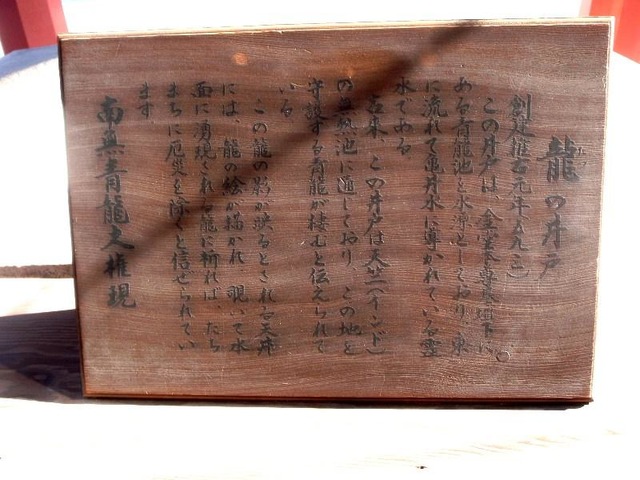 龍の井戸
創建推古元年(五九三)
この井戸は、金堂本尊基壇下に
ある青龍池を水源としており、東
に流れて亀井水に導かれている霊
水である
古来、この井戸は天竺(インド)
の無熱池に通じており、この地を
守護する青龍が棲むと伝えられて
いる
この龍の影が映るとされる天井
には、龍の絵が描かれ、覗いて水
面に湧現される龍に祈れば、たち
まちに厄災を除くと信ぜられてい
ます
南無青龍大権現